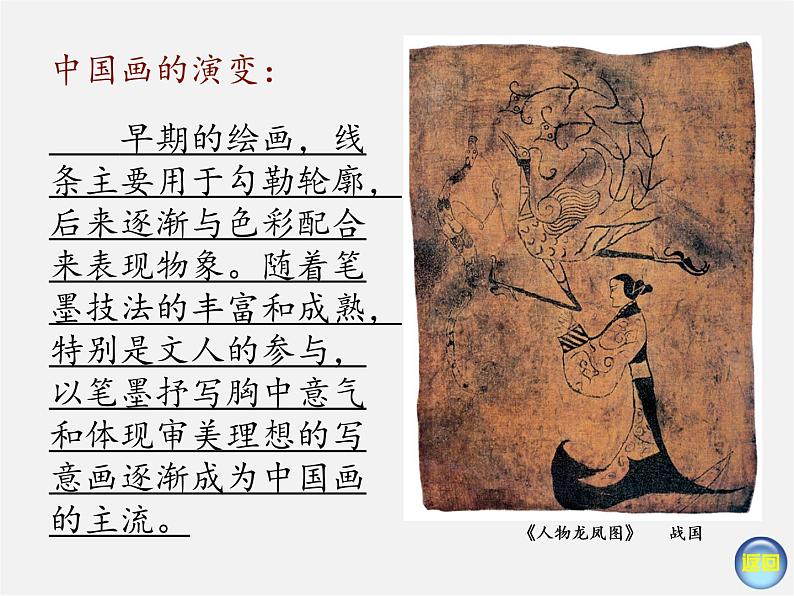 中国画的演变：
早期的绘画，线
条主要用于勾勒轮廓，
后来逐渐与色彩配合
来表现物象。随着笔
墨技法的丰富和成熟，
特别是文人的参与，
以笔墨抒写胸中意气
和体现审美理想的写
意画逐渐成为中国画
的主流。
《人物龙凤图》 战国
返回